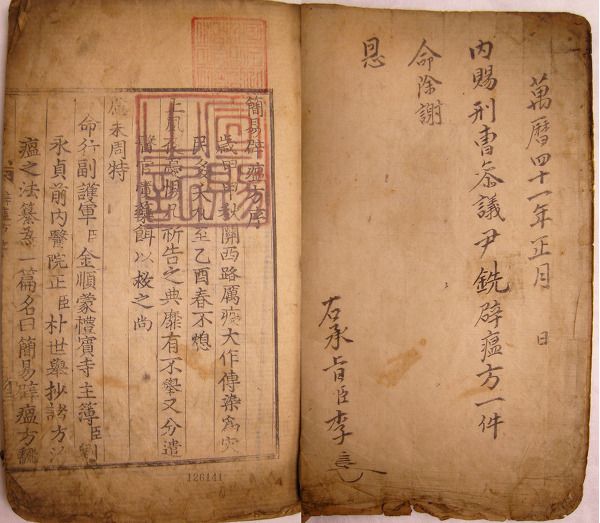 萬曆四十一年正月 日
內賜刑曹參議尹銑辟瘟方一件
命除謝
恩
右承旨臣李
簡易辟瘟方序
歲甲申秋關西路厲疫大作傳染爲災
民多夭札至乙酉春不熄
上夙夜 凡祈告之典靡有不舉又分遣
醫官齎藥餌以救之尚
慮未周特
命行副護軍臣金順蒙禮賓寺主簿臣劉
永貞前內醫院正臣朴世舉抄諸方治
瘟之法纂爲一篇名曰簡易辟瘟方翻
宣賜之記
126141